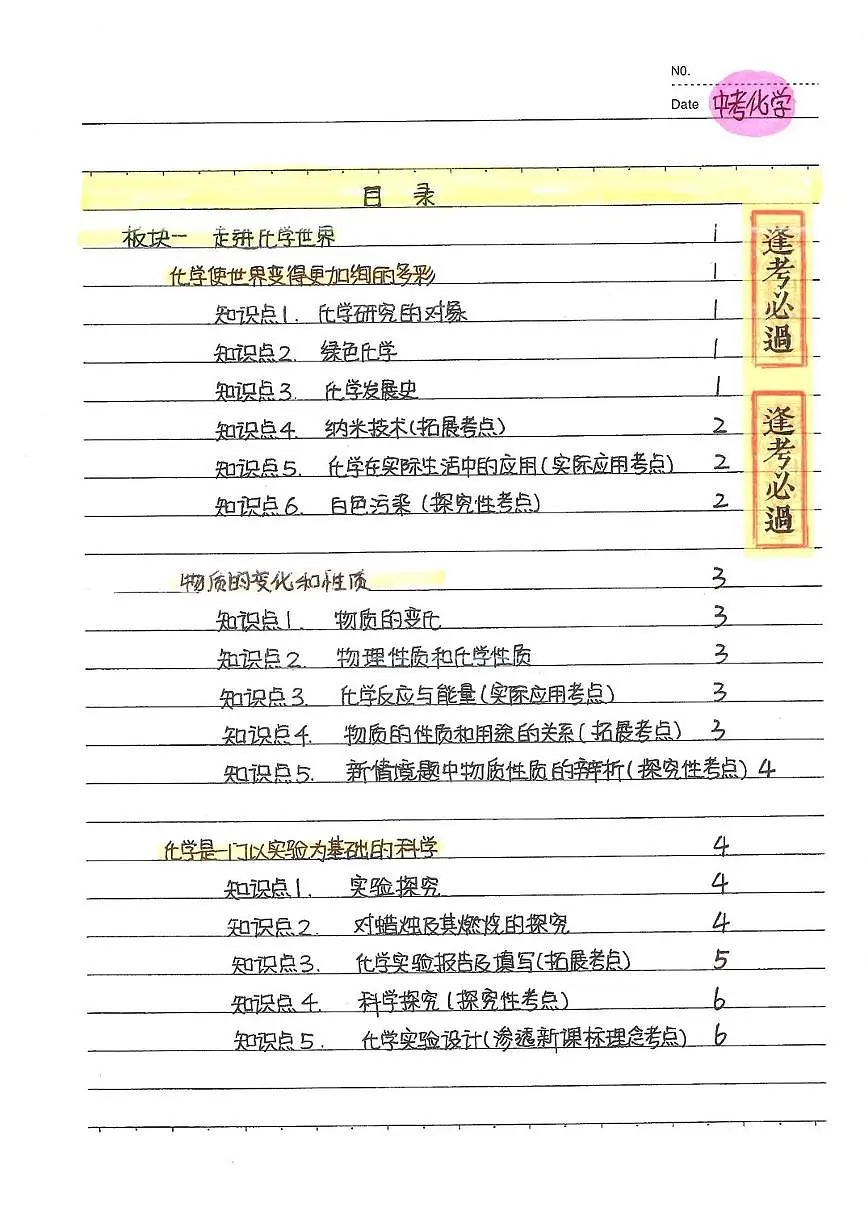 NO.
Date 中考化学
目 录
板块一 走进化学世界 1
化学使世界变得更加绚丽多彩 1
知识点1. 化学研究的对象 1
知识点2. 绿色化学 1
知识点3. 化学发展史 1
知识点4. 纳米技术(拓展考点) 2
知识点5. 化学在实际生活中的应用(实际应用考点) 2
知识点6. 白色污染(探究性考点) 2
逢考必過
逢考必過
物质的变化和性质 3
知识点1. 物质的变化 3
知识点2. 物理性质和化学性质 3
知识点3. 化学反应与能量(实际应用考点) 3
知识点4. 物质的性质和用途的关系(拓展考点) 3
知识点5. 新情境题中物质性质的辨析(探究性考点) 4
化学是一门以实验为基础的科学 4
知识点1. 实验探究 4
知识点2. 对蜡烛及其燃烧的探究 4
知识点3. 化学实验报告及填写(拓展考点) 5
知识点4. 科学探究(探究性考点) 6
知识点5. 化学实验设计(渗透新课标理念考点) 6